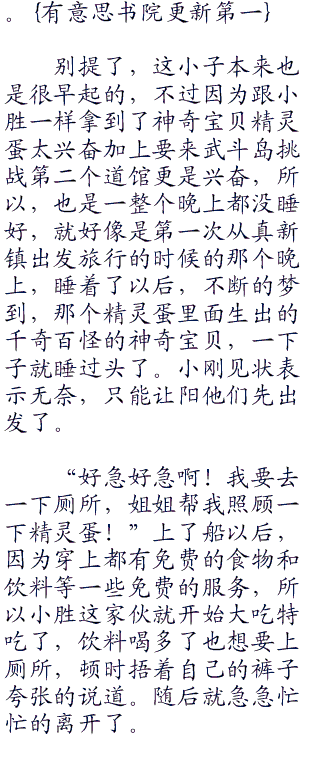 。{有意思书院更新第一}
别提了，这小子本来也
是很早起的，不过因为跟小
胜一样拿到了神奇宝贝精灵
蛋太兴奋加上要来武斗岛挑
战第二个道馆更是兴奋，所
以，也是一整个晚上都没睡
好，就好像是第一次从真新
镇出发旅行的时候的那个晚
上，睡着了以后，不断的梦
到，那个精灵蛋里面生出的
千奇百怪的神奇宝贝，一下
子就睡过头了。小刚见状表
示无奈，只能让阳他们先出
发了。
“好急好急啊！我要去
一下厕所，姐姐帮我照顾一
下精灵蛋！”上了船以后，
因为穿上都有免费的食物和
饮料等一些免费的服务，所
以小胜这家伙就开始大吃特
吃了，饮料喝多了也想要上
厕所，顿时捂着自己的裤子
夸张的说道。随后就急急忙
忙的离开了。